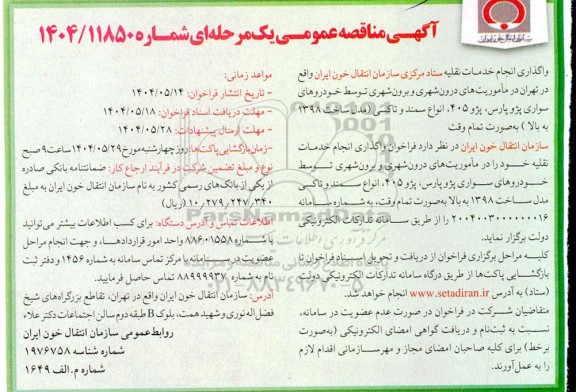 آگهی مناقصه عمومی یک مرحله‌ای شماره ۱۴۰۴/۱۱۸۵۰
واگذاری انجام خدمات نقلیه ستاد مرکزی سازمان انتقال خون ایران واقع
در تهران در مأموریت‌های درون‌شهری و برون‌شهری توسط خودروهای
سواری پژو پارس، پژو ۴۰۵، انواع سمند و تاکسی (مدل ساخت ۱۳۹۸
به بالا) به‌صورت تمام وقت
سازمان انتقال خون ایران در نظر دارد فراخوان واگذاری انجام خدمات
نقلیه خود را در مأموریت‌های درون‌شهری و برون‌شهری توسط
خودروهای سواری پژو پارس، پژو ۴۰۵، انواع سمند و تاکسی
مدل ساخت ۱۳۹۸ به بالا به‌صورت تمام وقت، به شماره سامانه
۲۰۰۴۰۰۳۰۰۰۰۰۰۰۱۶ را از طریق سامانه تدارکات الکترونیکی
دولت برگزار نماید.
کلیه مراحل برگزاری فراخوان از دریافت و تحویل اسناد فراخوان تا
بازگشایی پاکت‌ها از طریق درگاه سامانه تدارکات الکترونیکی دولت
(ستاد) به آدرس www.setadiran.ir انجام خواهد شد.
متقاضیان شرکت در فراخوان در صورت عدم عضویت در سامانه،
نسبت به ثبت‌نام و دریافت گواهی امضای الکترونیکی (به‌صورت
برخط) برای کلیه صاحبان امضای مجاز و مهر سازمانی اقدام لازم
را به عمل آورند.
مواعد زمانی:
- تاریخ انتشار فراخوان: ۱۴۰۴/۰۵/۱۴
- مهلت دریافت اسناد فراخوان: ۱۴۰۴/۰۵/۱۸
- مهلت ارسال پیشنهادات: ۱۴۰۴/۰۵/۲۸
- زمان بازگشایی پاکت‌ها: روز چهارشنبه مورخ ۱۴۰۴/۰۵/۲۹ ساعت ۹ صبح
نوع و مبلغ تضمین شرکت در فرآیند ارجاع کار: ضمانتنامه بانکی صادره
از یکی از بانک‌های رسمی کشور به نام سازمان انتقال خون ایران به مبلغ
۱۰,۲۷۹,۲۴۷,۳۴۰ (ریال)
اطلاعات تماس و آدرس دستگاه: برای کسب اطلاعات بیشتر می‌توانید
با شماره ۸۸۶۰۱۵۵۸ واحد امور قراردادها، و جهت انجام مراحل
عضویت در سامانه با مرکز تماس سامانه به شماره ۱۴۵۶ و دفتر ثبت
نام به شماره ۸۸۹۹۹۹۳۷ تماس حاصل فرمایید.
آدرس: سازمان انتقال خون ایران واقع در تهران، تقاطع بزرگراه‌های شیخ
فضل‌اله نوری و شهید همت، بلوک B طبقه دوم سالن اجتماعات دکتر علاء
روابط عمومی سازمان انتقال خون ایران
شماره شناسه ۱۹۷۶۷۵۸
شماره م.الف ۱۶۴۹
ParsNamadData
۰۲۱-۸۸۳۴۹۶۷۰-۵